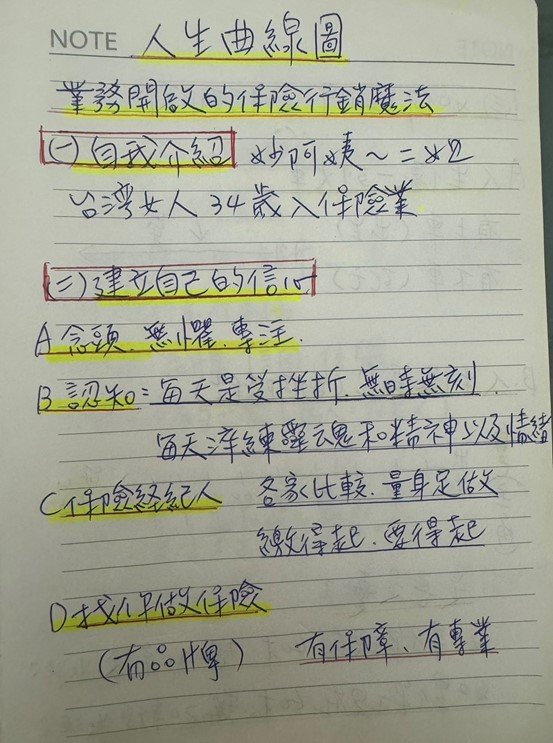 NOTE 人生曲線圖
業務開啟的保險行銷魔法
(一)自我介紹 妙阿姨~二妞
台湾女人 34歲入保險業
(二)建立自己的信心
A 念頭、無懼、專注.
B 認知:每天是受挫折、無時無刻.
每天淬練靈魂和精神以及情緒
C 保險経紀人 各家比較、量身定做
繳得起、要得起
D 找伊做保險
(有品牌) 有保障、有專業